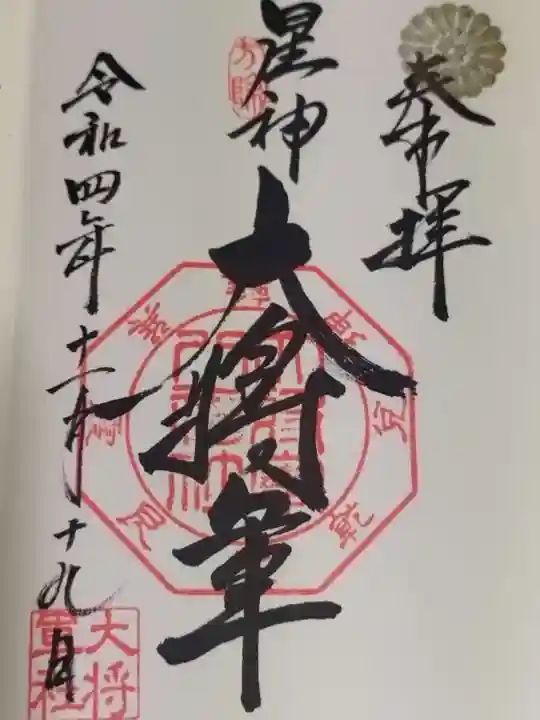 奉拝
星神
大将軍
令和四年十一月十九日
方除
大将
軍社